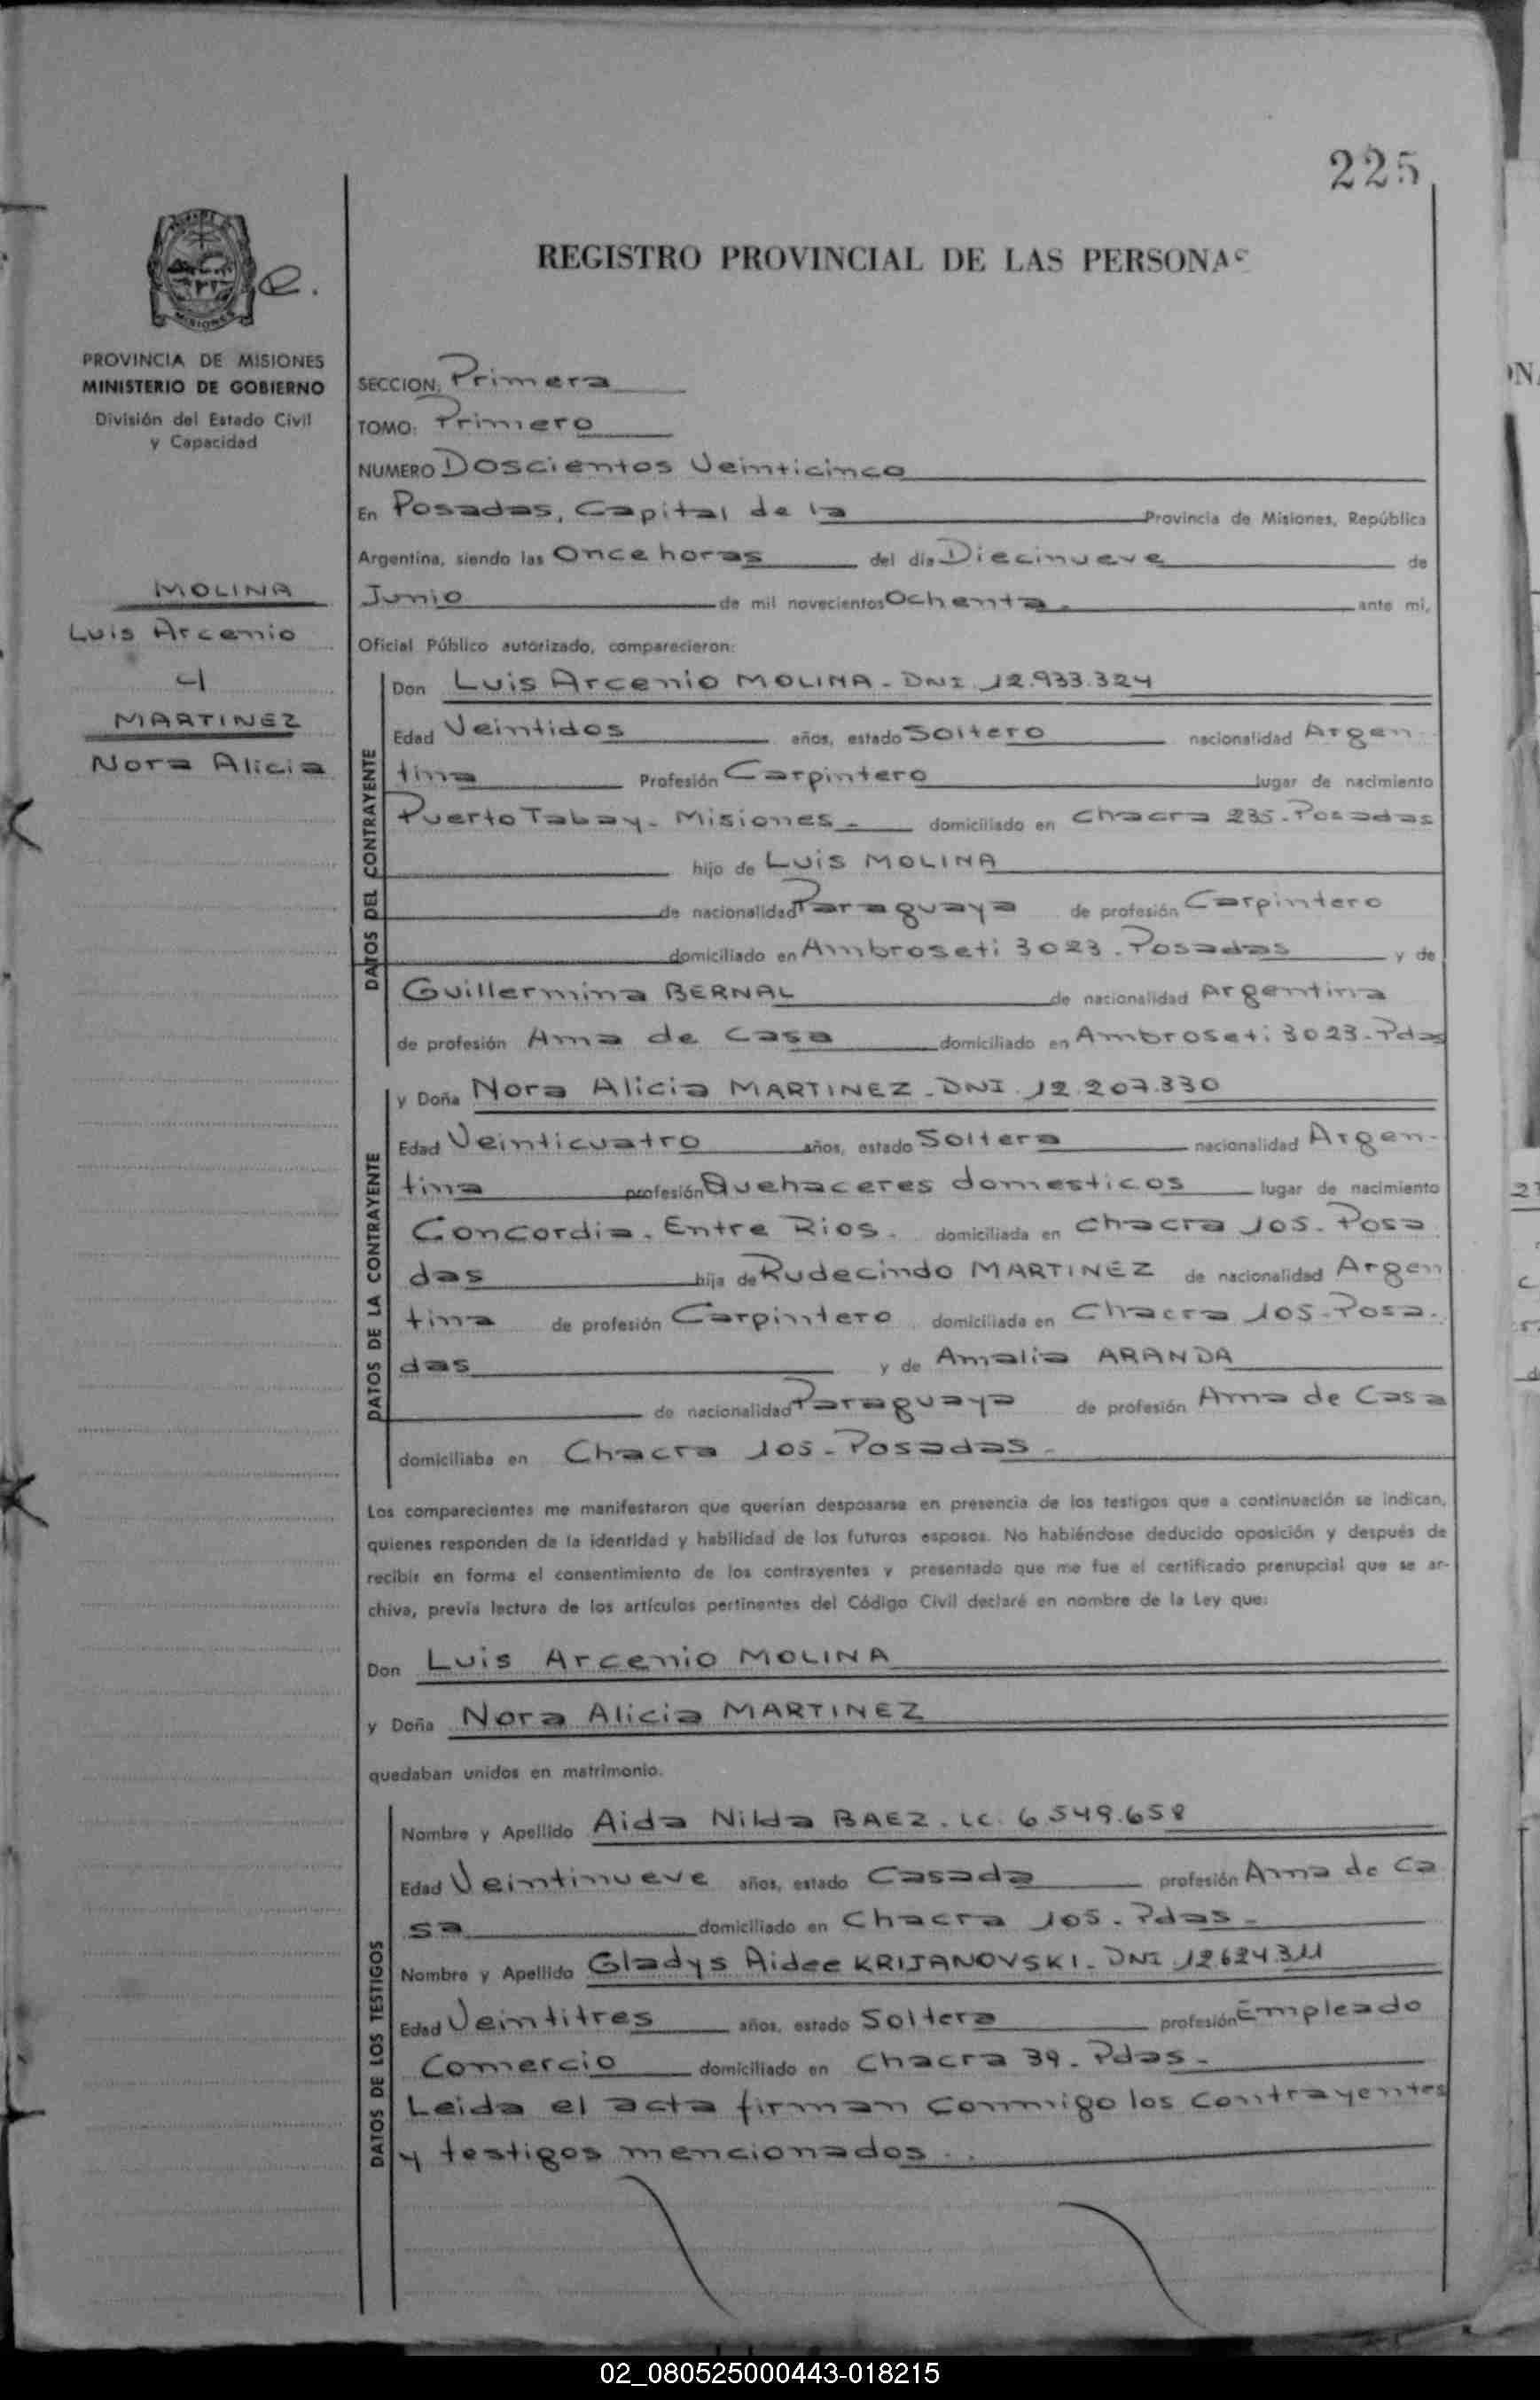 225
REGISTRO PROVINCIAL DE LAS PERSONAS
MISIONES
e.
PROVINCIA DE MISIONES
MINISTERIO DE GOBIERNO
División del Estado Civil
y Capacidad
MOLINA
Luis Arcenio
y
MARTINEZ
Nora Alicia
SECCION: Primera
TOMO: Primero
NUMERO Doscientos Veinticinco
En Posadas, Capital de la Provincia de Misiones, República
Argentina, siendo las Once horas del día Diecinueve de
Junio de mil novecientos Ochenta. ante mi,
Oficial Público autorizado, comparecieron:
DATOS DEL CONTRAYENTE
Don Luis Arcenio MOLINA - DNI 12.933.324
Edad Veintidos años, estado Soltero nacionalidad Argen
tina Profesión Carpintero lugar de nacimiento
Puerto Tabay - Misiones - domiciliado en Chacra 235 - Posadas
hijo de Luis MOLINA
de nacionalidad Paraguaya de profesión Carpintero
domiciliado en Ambroseti 3023 - Posadas y de
Guillermina BERNAL de nacionalidad Argentina
de profesión Ama de Casa domiciliado en Ambroseti 3023 - Pdas
DATOS DE LA CONTRAYENTE
y Doña Nora Alicia MARTINEZ - DNI 12.207.330
Edad Veinticuatro años, estado Soltera nacionalidad Argen-
tina profesión Quehaceres domesticos lugar de nacimiento
Concordia. Entre Rios. domiciliada en Chacra 105 - Posa
das hija de Rudecindo MARTINEZ de nacionalidad Argen
tina de profesión Carpintero domiciliada en Chacra 105 - Posa.
das y de Amalia ARANDA
de nacionalidad Paraguaya de profesión Ama de Casa
domiciliaba en Chacra 105 - Posadas -
Los comparecientes me manifestaron que querían desposarse en presencia de los testigos que a continuación se indican,
quienes responden de la identidad y habilidad de los futuros esposos. No habiéndose deducido oposición y después de
recibir en forma el consentimiento de los contrayentes y presentado que me fue el certificado prenupcial que se ar-
chiva, previa lectura de los artículos pertinentes del Código Civil declaré en nombre de la Ley que:
Don Luis Arcenio MOLINA
y Doña Nora Alicia MARTINEZ
quedaban unidos en matrimonio.
DATOS DE LOS TESTIGOS
Nombre y Apellido Aida Nilda BAEZ - LC. 6.549.658
Edad Veintinueve años, estado Casada profesión Ama de Ca
sa domiciliado en Chacra 105 - Pdas -
Nombre y Apellido Gladys Aidee KRIJANOVSKI - DNI 12.624.311
Edad Veintitres años, estado Soltera profesión Empleado
Comercio domiciliado en Chacra 39 - Pdas -
Leida el acta firman conmigo los contrayentes
y testigos mencionados..
02_080525000443-018215